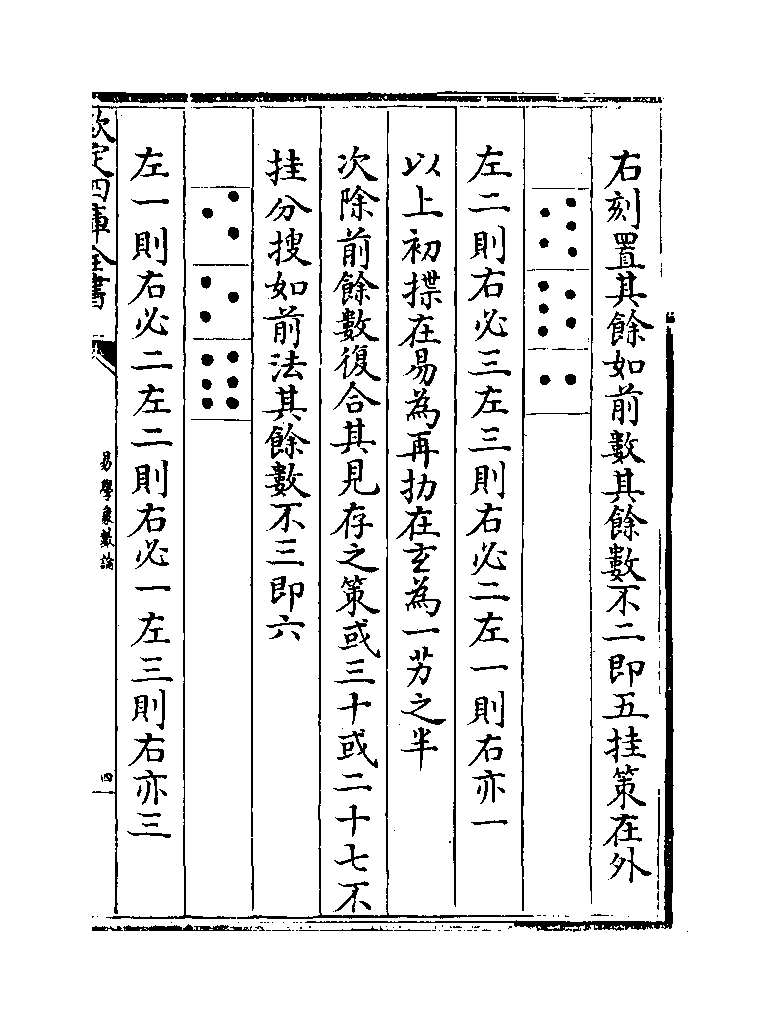 右刻置其餘如前數其餘數不二即五挂策在外
左二則右必三左三則右必二左一則右亦一
以上初揲在易為再扐在玄為一芳之半
次除前餘數復合其見存之策或三十或二十七不
挂分搜如前法其餘數不三即六
左一則右必二左二則右必一左三則右亦三
欽定四庫全書
易學象數論
四